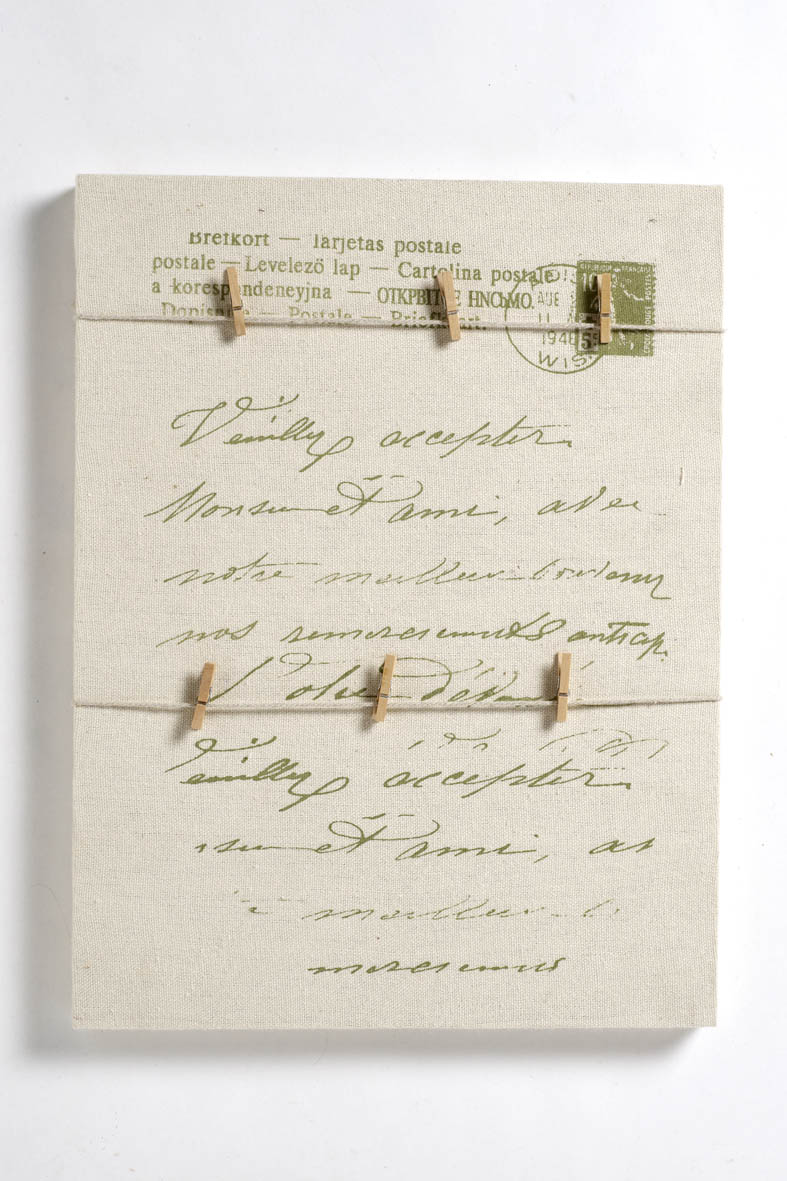 Brefkort — Tarjetas postale
postale — Levelezö lap — Cartolina postale
a korespondeneyjna — ОТКРВІТОЕ НИСЬМО.
Dopisnice — Postale — Briefkort.
AUE
11
1940
WIS.
REPUBLIQUE FRANÇAISE
10
Veuilly accepter
Monsieur et ami, avec
notre meilleur
nos remerciements anticip.
Votre Dévoué
euilly accepter
et ami, av
meilleur